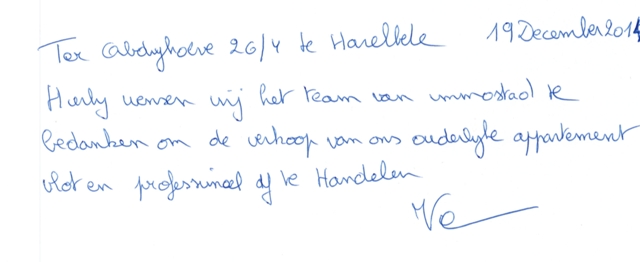 Ter Abdijhoeve 26/4 te Harelbeke 19 December 2014
Hierby wensen wij het team van immostad te
bedanken om de verkoop van ons ouderlyke appartement
vlot en professineel af te Handelen